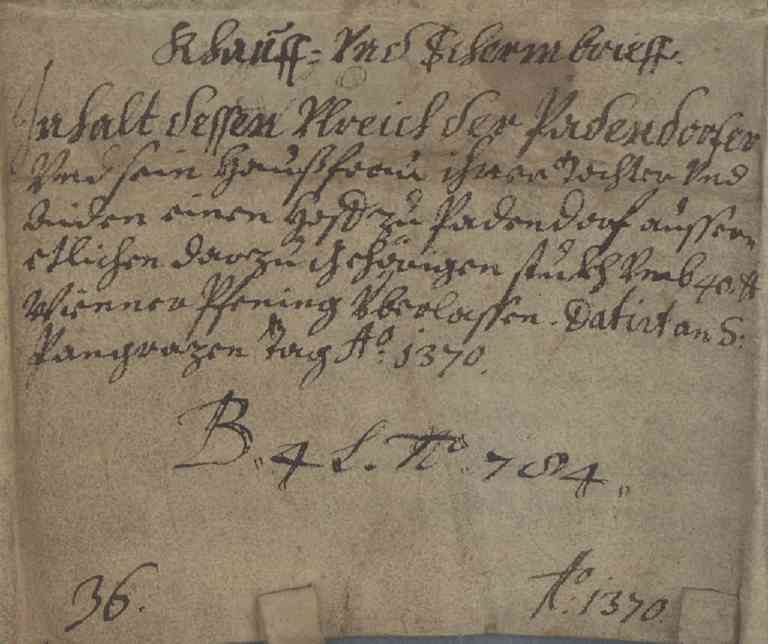 Khauff= Vnd Schermbrieff.
Inhalt dessen Vlreich der Padendorfer
Vnd sein Haußfrau ihrer Tochter Vnd
einen Hoff zu Padendorf aussern
etlichen darzu gehörigen stukh Vmb 40 ₰
Wienner Pfening Vberlassen. Datirt an S:
Pangrazen Tag Aō: 1370.
B. 4 L. No. 784.
36.
Aō: 1370.